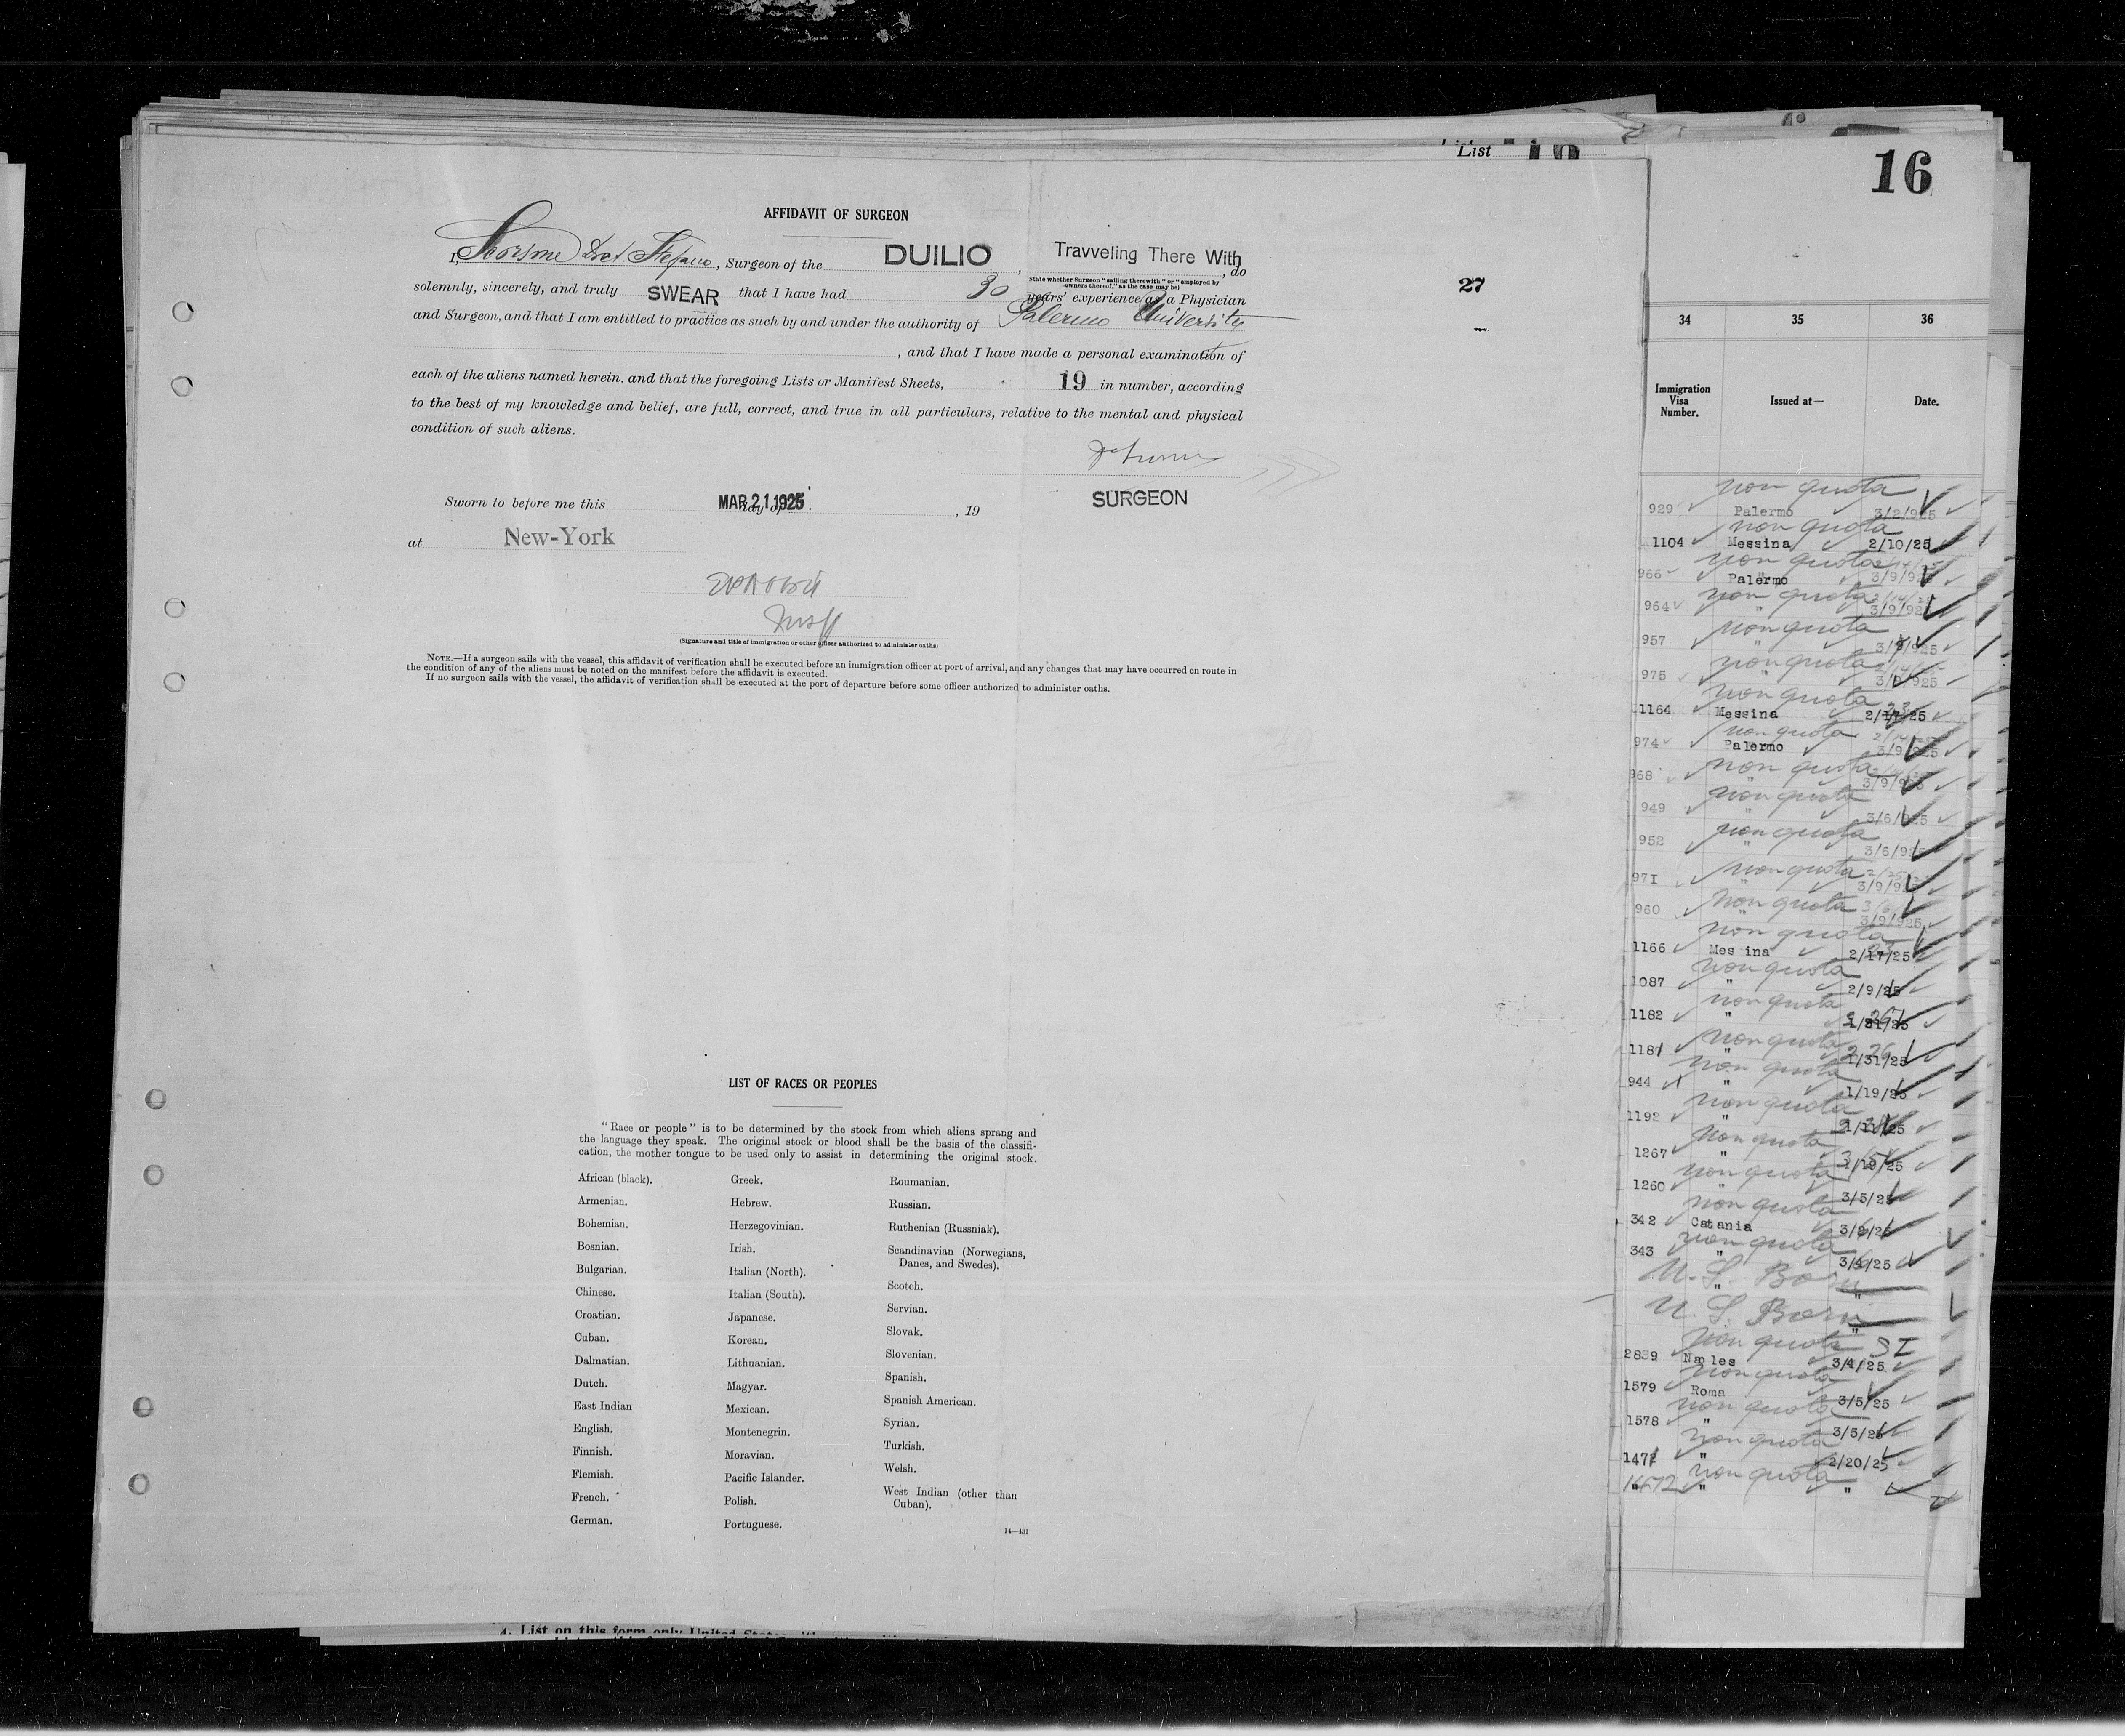 List 19
16
AFFIDAVIT OF SURGEON
I, Dr Stefano, Surgeon of the DUILIO, Travveling There With, do
State whether Surgeon "sailing therewith" or "employed by
owners thereof," as the case may be)
solemnly, sincerely, and truly SWEAR that I have had 30 years' experience as a Physician
and Surgeon, and that I am entitled to practice as such by and under the authority of Palermo University
, and that I have made a personal examination of
each of the aliens named herein. and that the foregoing Lists or Manifest Sheets, 19 in number, according
to the best of my knowledge and belief, are full, correct, and true in all particulars, relative to the mental and physical
condition of such aliens.
SURGEON
Sworn to before me this MAR 21 1925 day of , 19
at New-York
Insp
(Signature and title of immigration or other officer authorized to administer oaths)
NOTE.—If a surgeon sails with the vessel, this affidavit of verification shall be executed before an immigration officer at port of arrival, and any changes that may have occurred en route in
the condition of any of the aliens must be noted on the manifest before the affidavit is executed.
If no surgeon sails with the vessel, the affidavit of verification shall be executed at the port of departure before some officer authorized to administer oaths.
LIST OF RACES OR PEOPLES
"Race or people" is to be determined by the stock from which aliens sprang and
the language they speak. The original stock or blood shall be the basis of the classifi-
cation, the mother tongue to be used only to assist in determining the original stock.
African (black).
Armenian.
Bohemian.
Bosnian.
Bulgarian.
Chinese.
Croatian.
Cuban.
Dalmatian.
Dutch.
East Indian
English.
Finnish.
Flemish.
French.
German.
Greek.
Hebrew.
Herzegovinian.
Irish.
Italian (North).
Italian (South).
Japanese.
Korean.
Lithuanian.
Magyar.
Mexican.
Montenegrin.
Moravian.
Pacific Islander.
Polish.
Portuguese.
Roumanian.
Russian.
Ruthenian (Russniak).
Scandinavian (Norwegians,
Danes, and Swedes).
Scotch.
Servian.
Slovak.
Slovenian.
Spanish.
Spanish American.
Syrian.
Turkish.
Welsh.
West Indian (other than
Cuban).
14—431
4. List on this form only United States
27
34 35 36
Immigration Visa Number. Issued at— Date.
non quota
929 Palermo 3/2/925
non quota
1104 Messina 2/10/25
non quota
966 Palermo 3/9/925
non quota
964 " 3/9/925
non quota
957 " 3/9/925
non quota
975 " 3/9/925
non quota
1164 Messina 2/17/25
non quota
974 Palermo 3/9/925
non quota
968 " 3/9/925
non quota
949 " 3/6/925
non quota
952 " 3/6/925
non quota
971 " 3/9/925
non quota
960 " 3/9/925
non quota
1166 Mes ina 2/17/25
non quota
1087 " 2/9/25
non quota
1182 " 1/31/25
non quota
1181 " 1/31/25
non quota
944 " 1/19/25
non quota
1192 "
non quota
1267 " 1/19/25
non quota
1260 3/5/25
non quota
342 Catania
non quota
343 " 3/4/25
U.S. Born
" "
U.S. Born
"
non quota SI
2839 Naples 3/4/25
non quota
1579 Roma 3/5/25
non quota
1578 " 3/5/25
non quota
1471 " 2/20/25
non quota
1472 " "